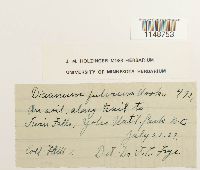 1148753
J. M. HOLZINGER MOSS HERBARIUM
UNIVERSITY OF MINNESOTA HERBARIUM
Dicranum fulvum Hook.
On soil, along trail to
Twin Falls, Yoho Nat'l Park B.C.
July
Coll Det. Dr. T. C. Frye.